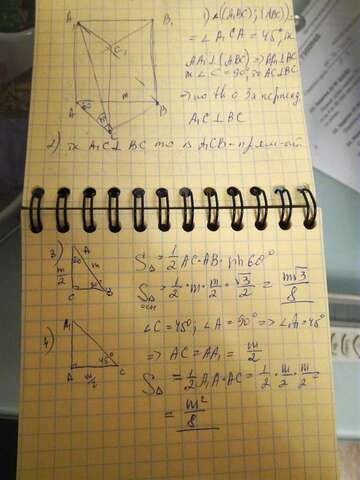 A₁ B₁
C₁
m
A 60° B
45°
C
1) ∠(A₁BC); (ABC) =
= ∠A₁CA = 45°, тк
AA₁⊥(ABC) => AA₁⊥BC
∠C = 90°, то AC⊥BC
=> по тв о 3х перпенд
A₁C⊥BC
2) тк A₁C⊥BC то △A₁CB -
3) A
60 m
m/2
C B
S△ = 1/2 AC · AB · sin 60°
S△ = 1/2 · m · m/2 · √3/2 = m√3/8
4) A₁
45°
A m/2 C
∠C = 45°; ∠A = 90° => ∠A₁ = 45°
=> AC = AA₁ = m/2
S△ = 1/2 A₁A · AC = 1/2 · m/2 · m/2 =
= m²/8